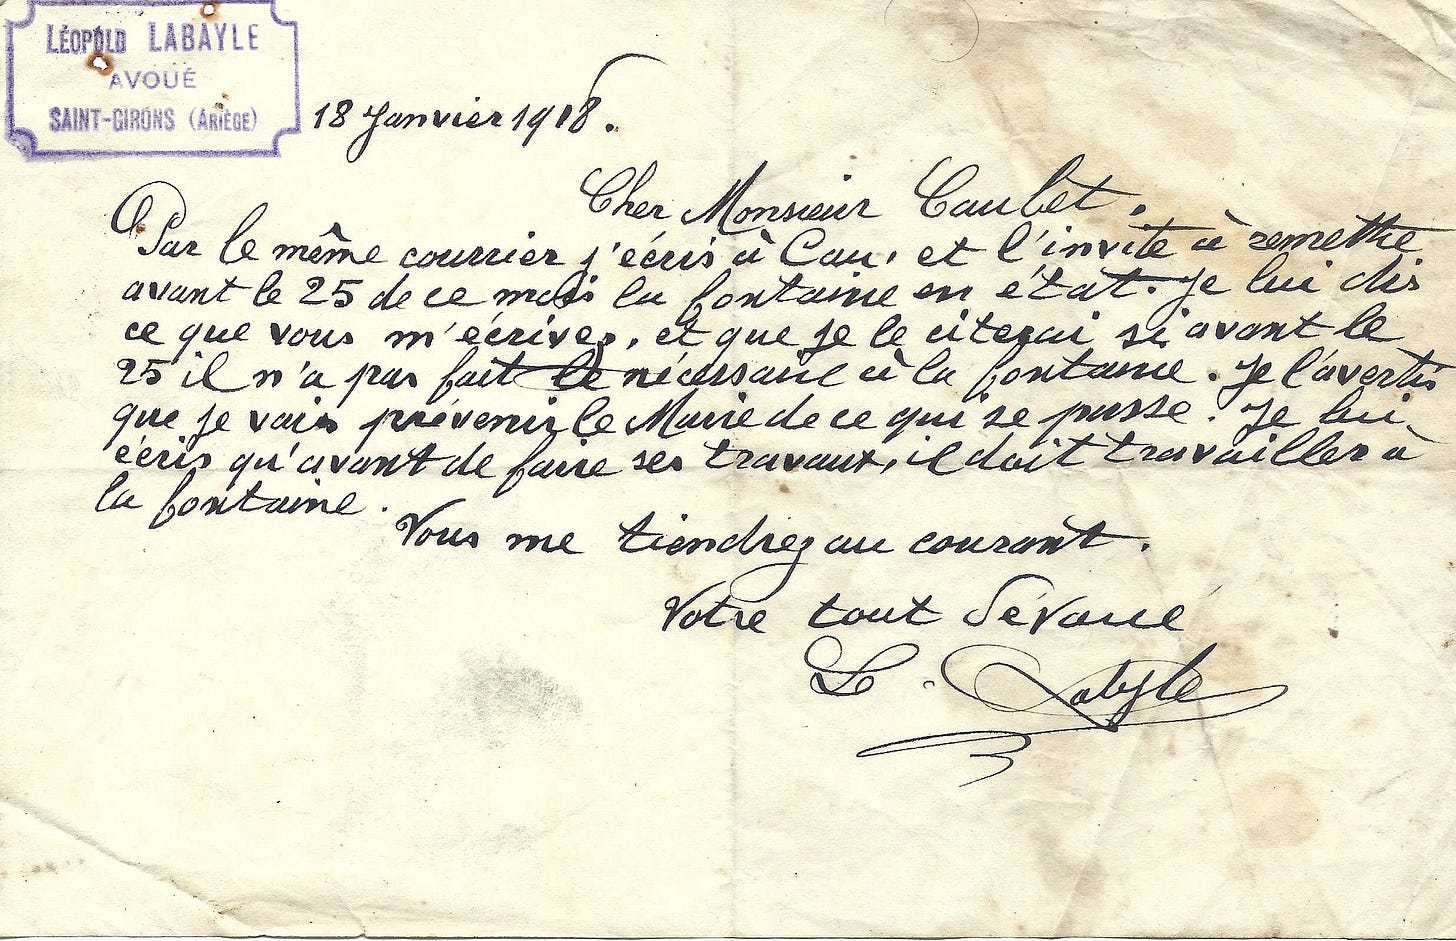 LÉOPOLD LABAYLE
AVOUÉ
SAINT-GIRONS (ARIÈGE)
18 Janvier 1918.
Cher Monsieur Caubet.
Par le même courrier j'écris à Cau, et l'invite à remettre
avant le 25 de ce mois la fontaine en état. Je lui dis
ce que vous m'écrivez, et que je le citerai si avant le
25 il n'a pas fait le nécessaire à la fontaine. Je l'avertis
que je vais prévenir le Maire de ce qui se passe. Je lui
écris qu'avant de faire ses travaux, il doit travailler à
la fontaine.
Vous me tiendrez au courant.
Votre tout dévoué
L. Labayle